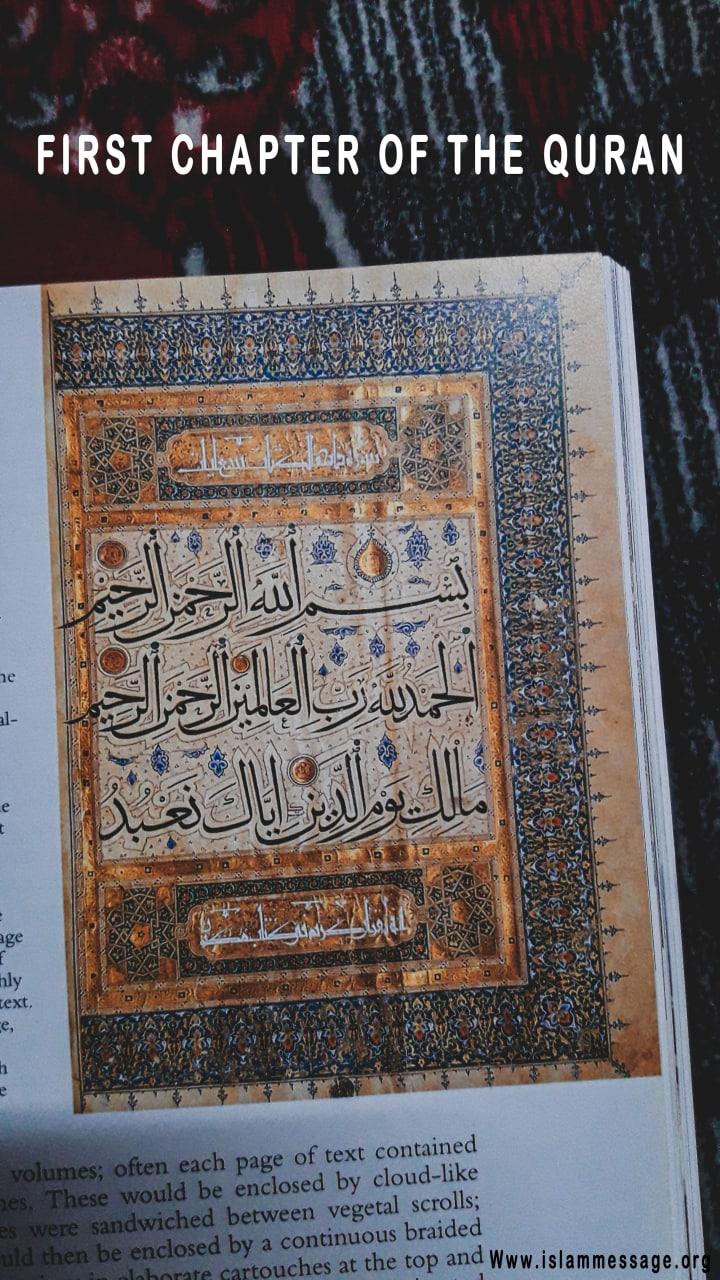 FIRST CHAPTER OF THE QURAN
بِسْمِ اللَّهِ الرَّحْمَٰنِ الرَّحِيمِ
الْحَمْدُ لِلَّهِ رَبِّ الْعَالَمِينَ الرَّحْمَٰنِ الرَّحِيمِ
مَالِكِ يَوْمِ الدِّينِ إِيَّاكَ نَعْبُدُ
he
al-
e
t
e
age
f
hly
text.
e,
h
e
volumes; often each page of text contained
nes. These would be enclosed by cloud-like
es were sandwiched between vegetal scrolls;
uld then be enclosed by a continuous braided
elaborate cartouches at the top and
Www.islammessage.org